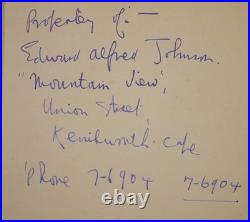 Property of:-
Edward Alfred Johnson.
"Mountain View",
Union Street,
Kenilworth. Cape
'Phone 7-6904 7-6904
vibizone.com